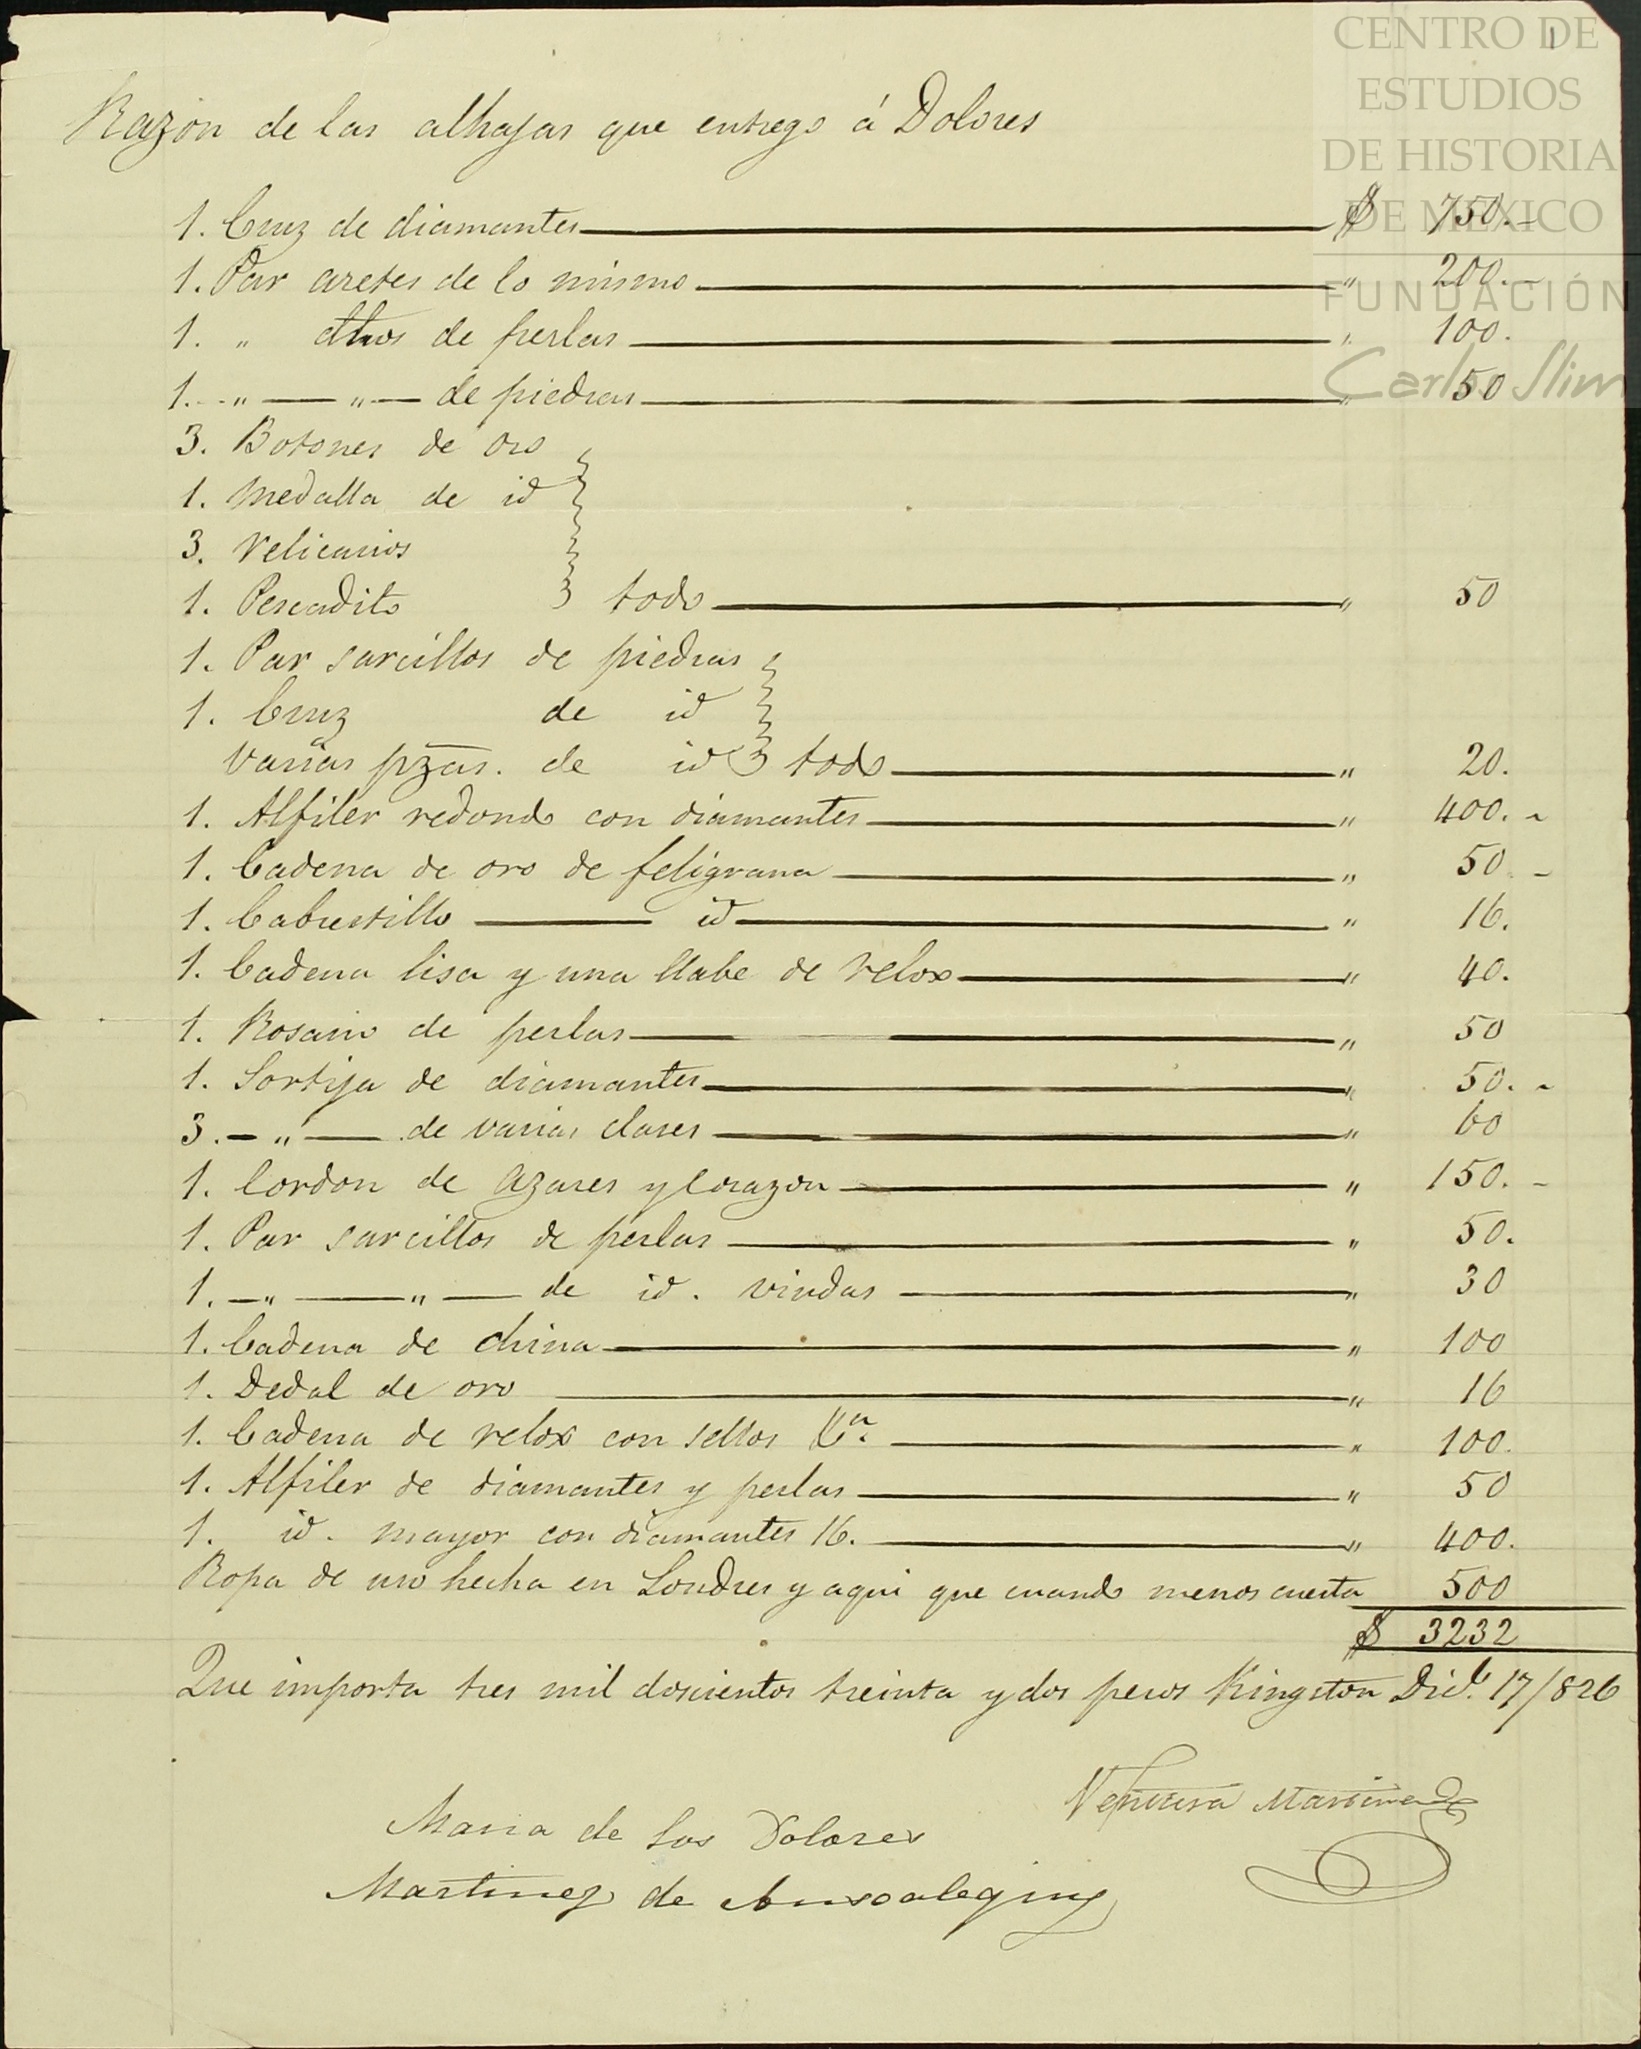 CENTRO DE
ESTUDIOS
DE HISTORIA
DE MEXICO
FUNDACIÓN
Carlos Slim
1
Razon de las alhajas que entrego á Dolores
1. Cruz de diamantes $ 750.-
1. Par aretes de lo mismo " 200.-
1. " otros de perlas " 100.
1. " " de piedras " 50
3. Botones de oro
1. Medalla de id
3. Relicarios
1. Pescadito todo " 50
1. Par sarcillos de piedras
1. Cruz de id
varias pzas. de id todo " 20.
1. Alfiler redondo con diamantes " 400.-
1. Cadena de oro de feligrana " 50.-
1. Cabrestillo id " 16.
1. Cadena lisa y una llabe de relox " 40.
1. Rosario de perlas " 50
1. Sortija de diamantes " 50.-
3. " de varias clases " 60
1. Cordon de azares y Corazon " 150.-
1. Par sarcillos de perlas " 50.
1. " " de id. viudas " 30
1. Cadena de china " 100
1. Dedal de oro " 16
1. Cadena de relox con sellos &a. " 100.
1. Alfiler de diamantes y perlas " 50
1. id. mayor con diamantes 16. " 400.
Ropa de uso hecha en Londres y aqui que cuando menos cuesta 500
$ 3232
Que importa tres mil doscientos treinta y dos pesos Kingston Dice. 17/826
Ventura Martinez
Maria de los Dolores
Martinez de